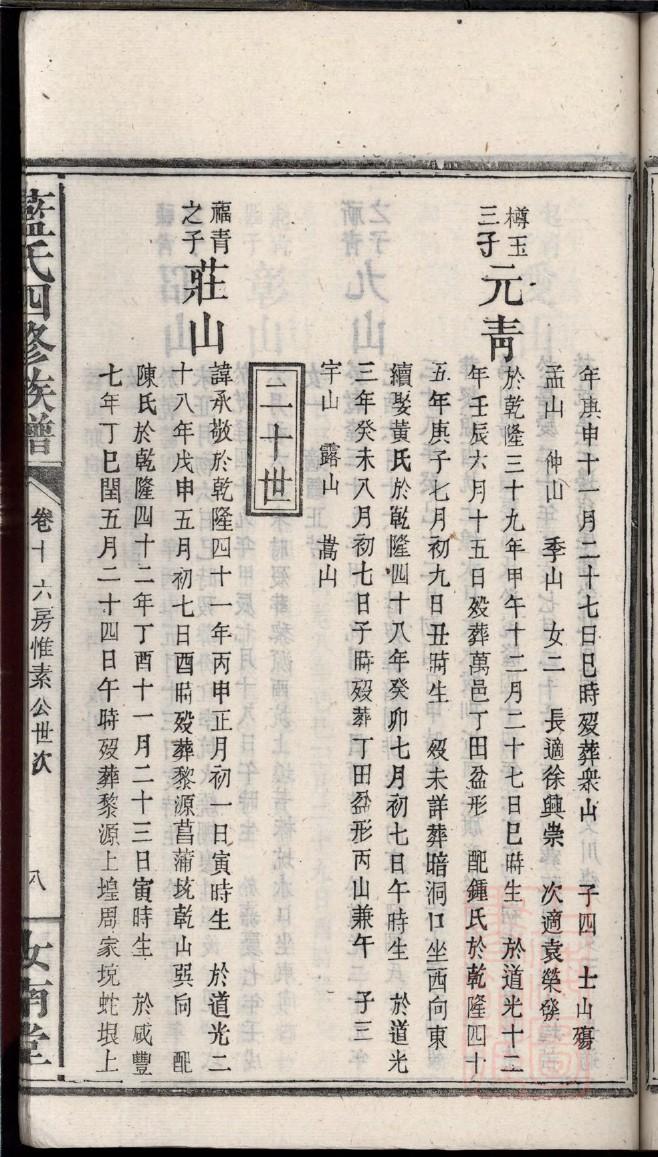 年庚申十一月二十七日巳時歿葬衆山　子四　士山殤
孟山　仲山　季山　女二　長適徐興崇　次適袁榮發
樽玉三子元靑
於乾隆三十九年甲午十二月二十七日巳時生　於道光十二
年壬辰六月十五日歿葬萬邑丁田盆形　配鍾氏於乾隆四十
五年庚子七月初九日丑時生　歿未詳葬暗洞口坐西向東
續娶黃氏於乾隆四十八年癸卯七月初七日午時生　於道光
三年癸未八月初七日子時歿葬丁田盆形丙山兼午　子三
宇山　露山　嵩山
二十世
福青之子莊山
諱承敬於乾隆四十一年丙申正月初一日寅時生　於道光二
十八年戊申五月初七日酉時歿葬黎源菖蒲坑乾山巽向　配
陳氏於乾隆四十二年丁酉十一月二十三日寅時生　於咸豐
七年丁巳閏五月二十四日午時歿葬黎源上埠周家坑蛇垠上
藍氏四修族譜
卷十　六房惟素公世次
八
汝南堂